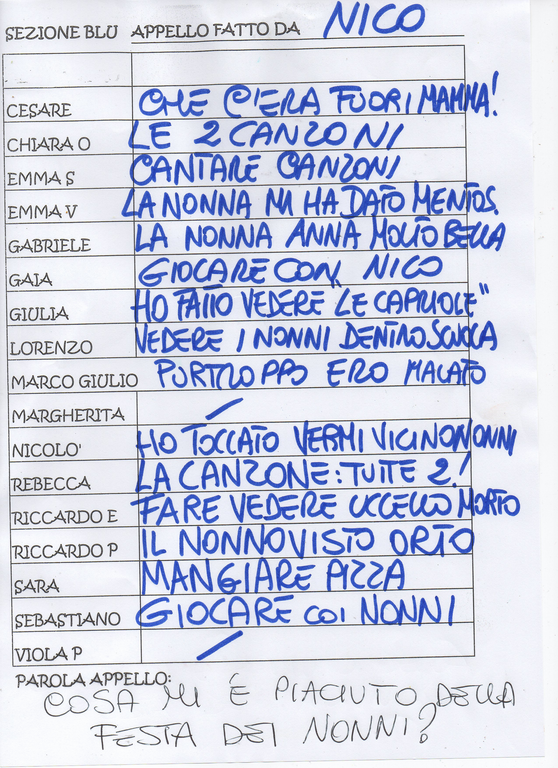 SEZIONE BLU APPELLO FATTO DA NICO
CESARE CHE C'ERA FUORI MAMMA!
CHIARA O LE 2 CANZONI
EMMA S CANTARE CANZONI
EMMA V LA NONNA MI HA DATO MENTOS.
GABRIELE LA NONNA ANNA MOLTO BELLA
GAIA GIOCARE CON NICO
GIULIA HO FATTO VEDERE LE CAPRIOLE"
LORENZO VEDERE I NONNI DENTRO SCUOLA
MARCO GIULIO PURTROPPO ERO MALATO
MARGHERITA /
NICOLO' HO TOCCATO VERMI VICINO NONNI
REBECCA LA CANZONE: TUTTE 2!
RICCARDO E FARE VEDERE UCCELLO MORTO
RICCARDO P IL NONNO VISTO ORTO
SARA MANGIARE PIZZA
SEBASTIANO GIOCARE COI NONNI
VIOLA P /
PAROLA APPELLO:
COSA MI È PIACIUTO DELLA
FESTA DEI NONNI?